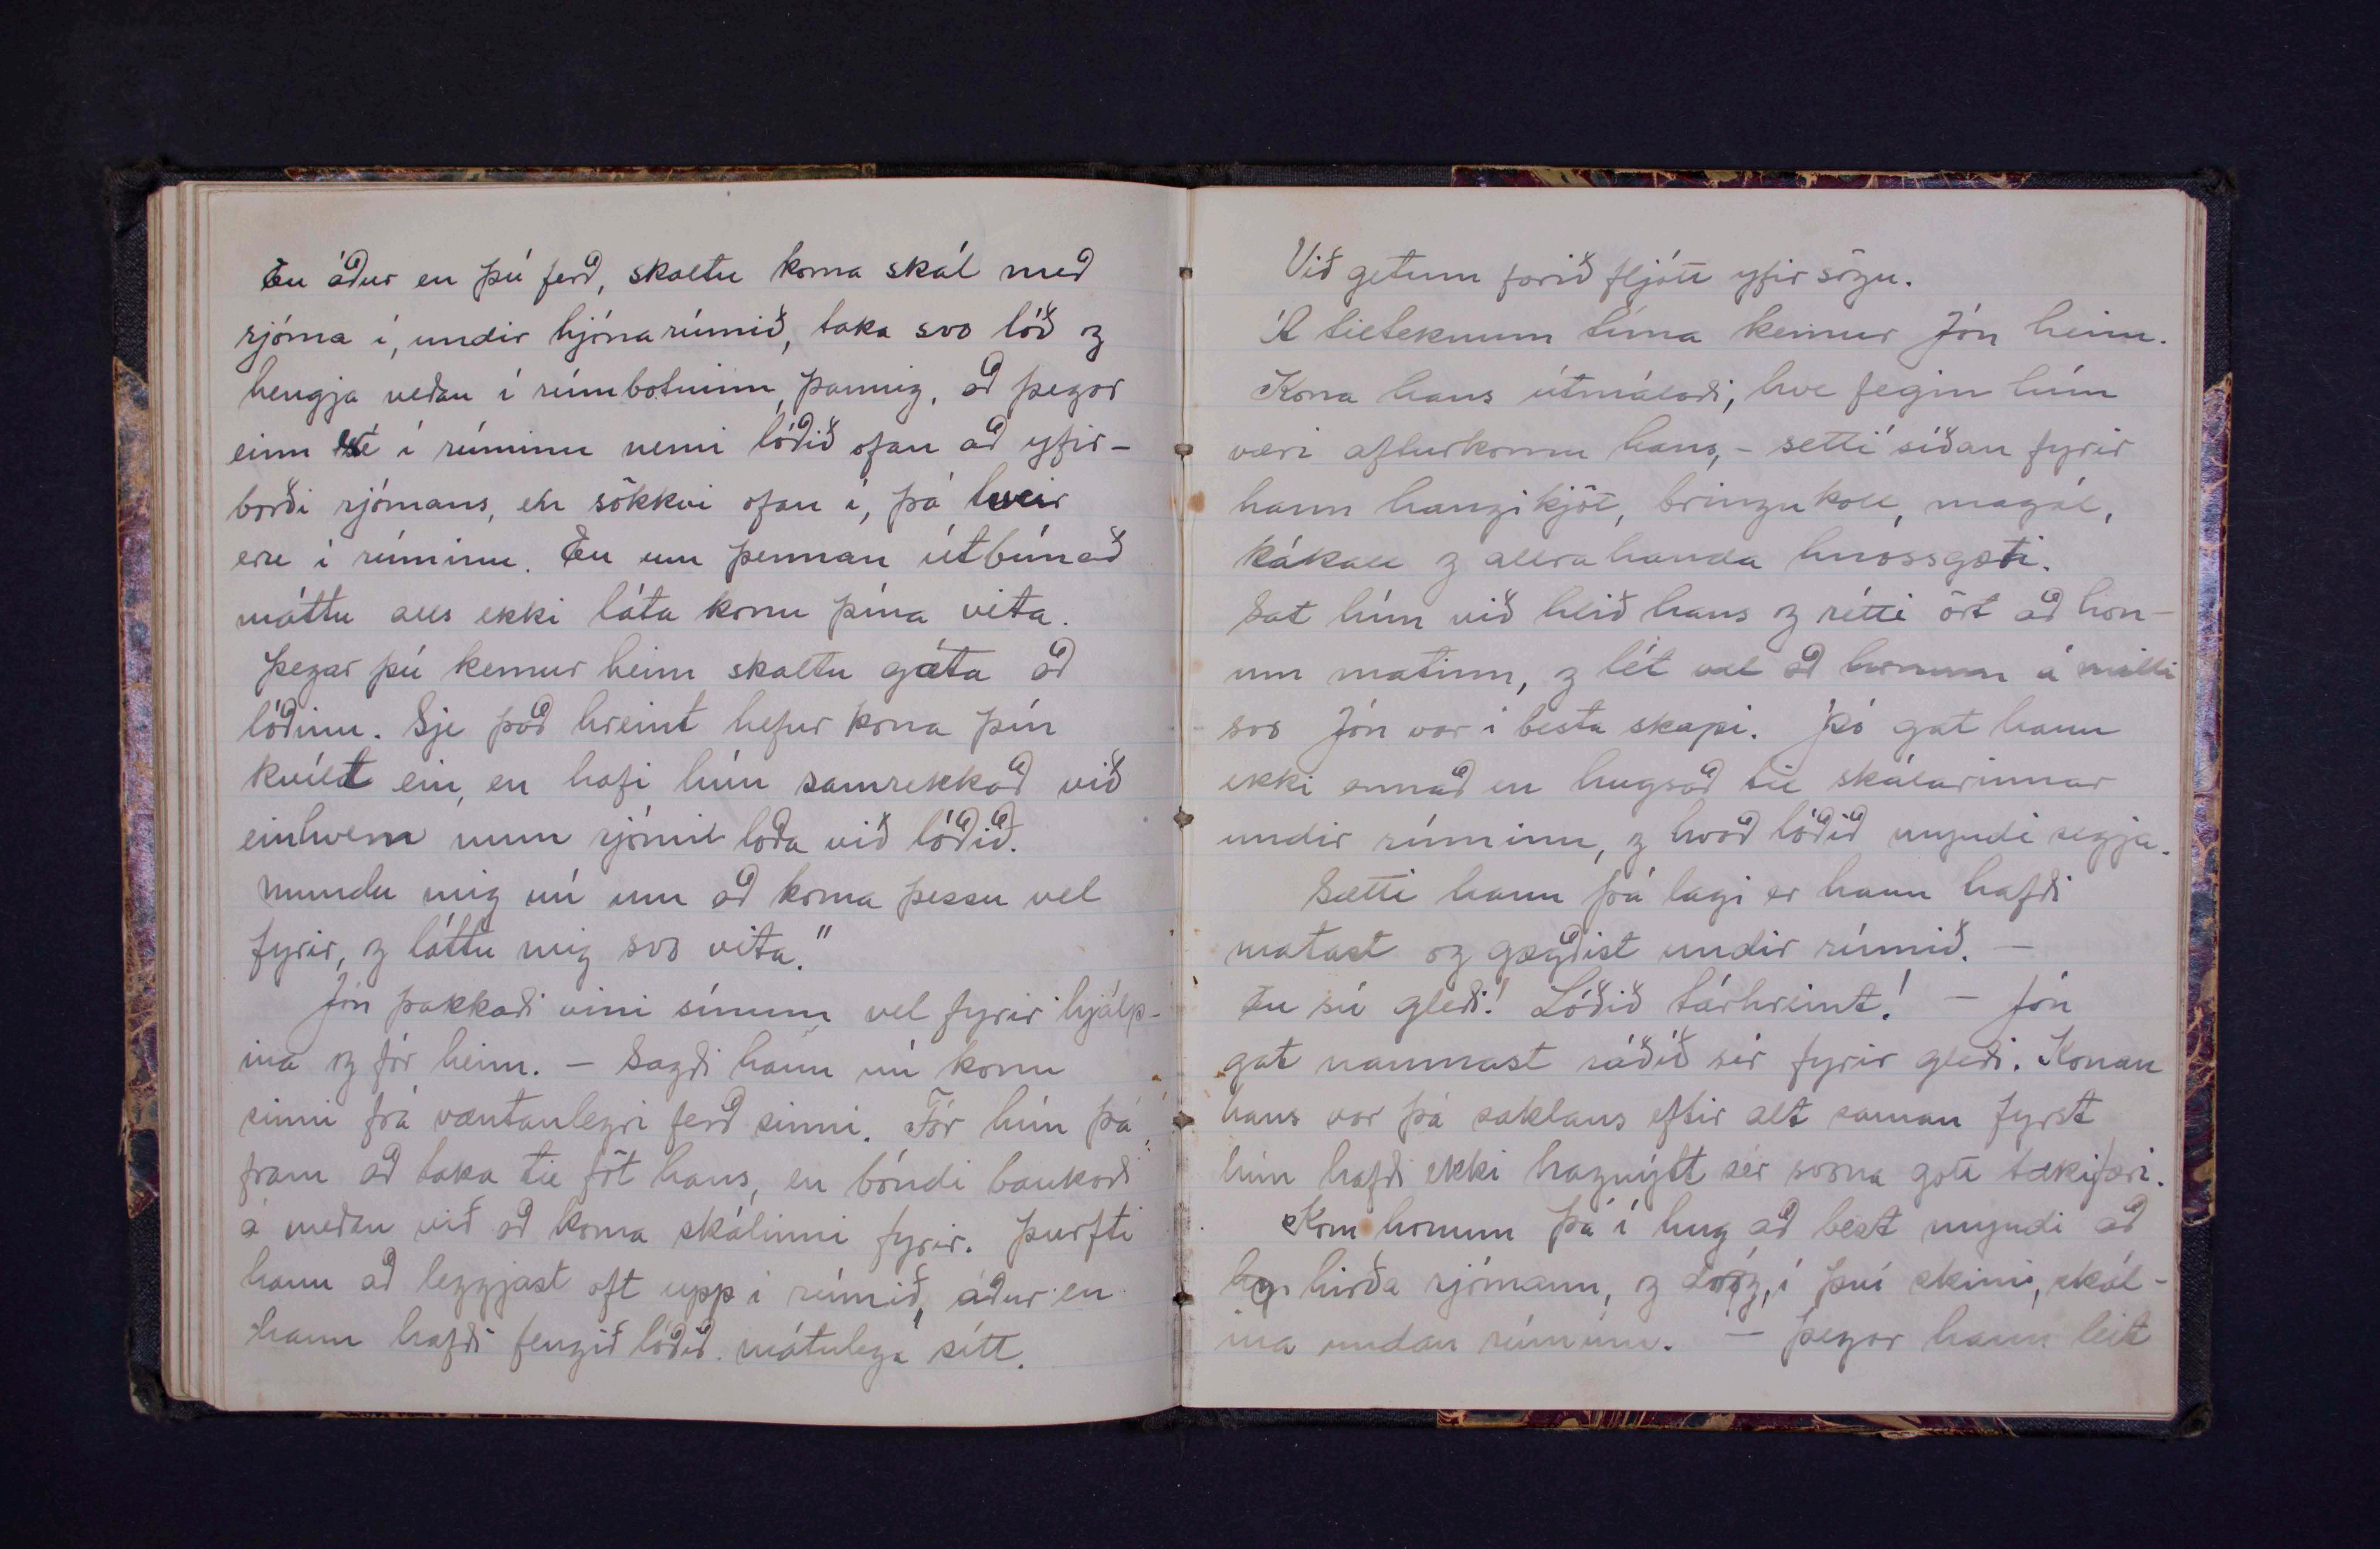 En áður en þú ferð, skaltu koma skál með
rjóma í, undir hjónarúmið, taka svo lóð og
hengja neðan í rúmbotninn, þannig, að þegar
einn sé í rúminu nemi lóðið ofan að yfir-
borði rjómans, en sökkvi ofan í, þá tveir
eru í rúminu. En um þennan útbúnað
máttu alls ekki láta konu þína vita.
Þegar þú kemur heim skaltu gæta að
lóðinu. Sje það hreint hefur kona þín
kvílt ein, en hafi hún samrekkað við
einhvern mun rjómil loða við lóðið.
Mundu mig nú um að koma þessu vel
fyrir, og láttu mig svo vita."
Jón þakkaði vini sínum vel fyrir hjálp-
ina og fór heim. – Sagði hann nú konu
sinni frá væntanlegri ferð sinni. Fór hún þá
fram að taka til föt hans, en bóndi baukaði
á meðan við að koma skálinni fyrir. Þurfti
hann að leggjast oft upp í rúmið, áður en
hann hafði fengið lóðið mátulega sítt.
Við getum farið fljótt yfir sögu.
Á tilteknum tíma kemur Jón heim.
Kona hans útmálaði, hve fegin hún
væri afturkomu hans, – setti síðan fyrir
hann hangikjöt, bringukoll, magál,
kákall og allra handa hnossgæti.
Sat hún við hlið hans og rétti ört að hon-
um matinn, og lét vel að honum á milli
svo Jón var í besta skapi. Þó gat hann
ekki annað en hugsað til skálarinnar
undir rúminu, og hvað lóðið myndi segja.
Sætti hann þá lagi er hann hafði
matast og gægðist undir rúmið. –
En sú gleði! Lóðið tárhreint! – Jón
gat naumast ráðið sér fyrir gleði. Konan
hans var þá saklaus eftir alt saman fyrst
hún hafði ekki hagnýtt sér svona gott tækifæri.
Kom honum þá í hug að best myndi að
hirða rjómann, og dróg, í því skini, skál-
ina undan rúminu. – Þegar hann leit